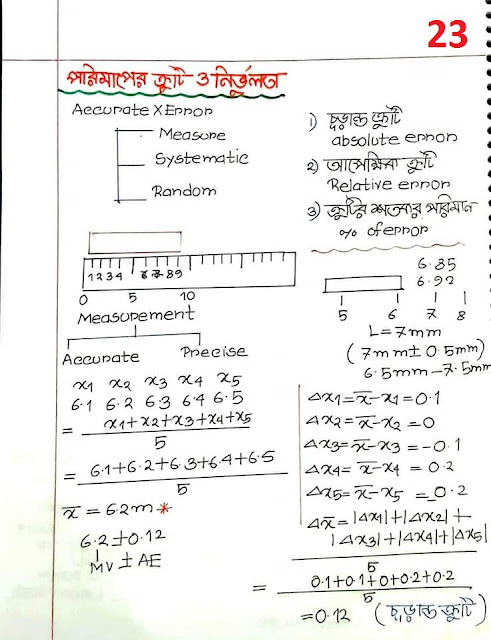 23
পরিমাপের ত্রুটি ও নির্ভুলতা
Accurate X Error
Measure
Systematic
Random
1) চূড়ান্ত ত্রুটি
absolute error
2) আপেক্ষিক ত্রুটি
Relative error
3) ত্রুটির শতকরা পরিমান
% of error
1 2 3 4 6 7 8 9
0 5 10
6.85
6.92
5 6 7 8
L = 7mm
(7mm ± 0.5mm)
6.5mm - 7.5mm
Measurement
Accurate Precise
x1 x2 x3 x4 x5
6.1 6.2 6.3 6.4 6.5
= x1+x2+x3+x4+x5
5
= 6.1+6.2+6.3+6.4+6.5
5
x̄ = 62m *
6.2 ± 0.12
MV ± AE
Δx1 = x̄ - x1 = 0.1
Δx2 = x̄ - x2 = 0
Δx3 = x̄ - x3 = -0.1
Δx4 = x̄ - x4 = 0.2
Δx5 = x̄ - x5 = 0.2
Δx̄ = |Δx1| + |Δx2| +
|Δx3| + |Δx4| + |Δx5|
5
= 0.1+0.1+0+0.2+0.2
5
= 0.12 (চূড়ান্ত ত্রুটি)